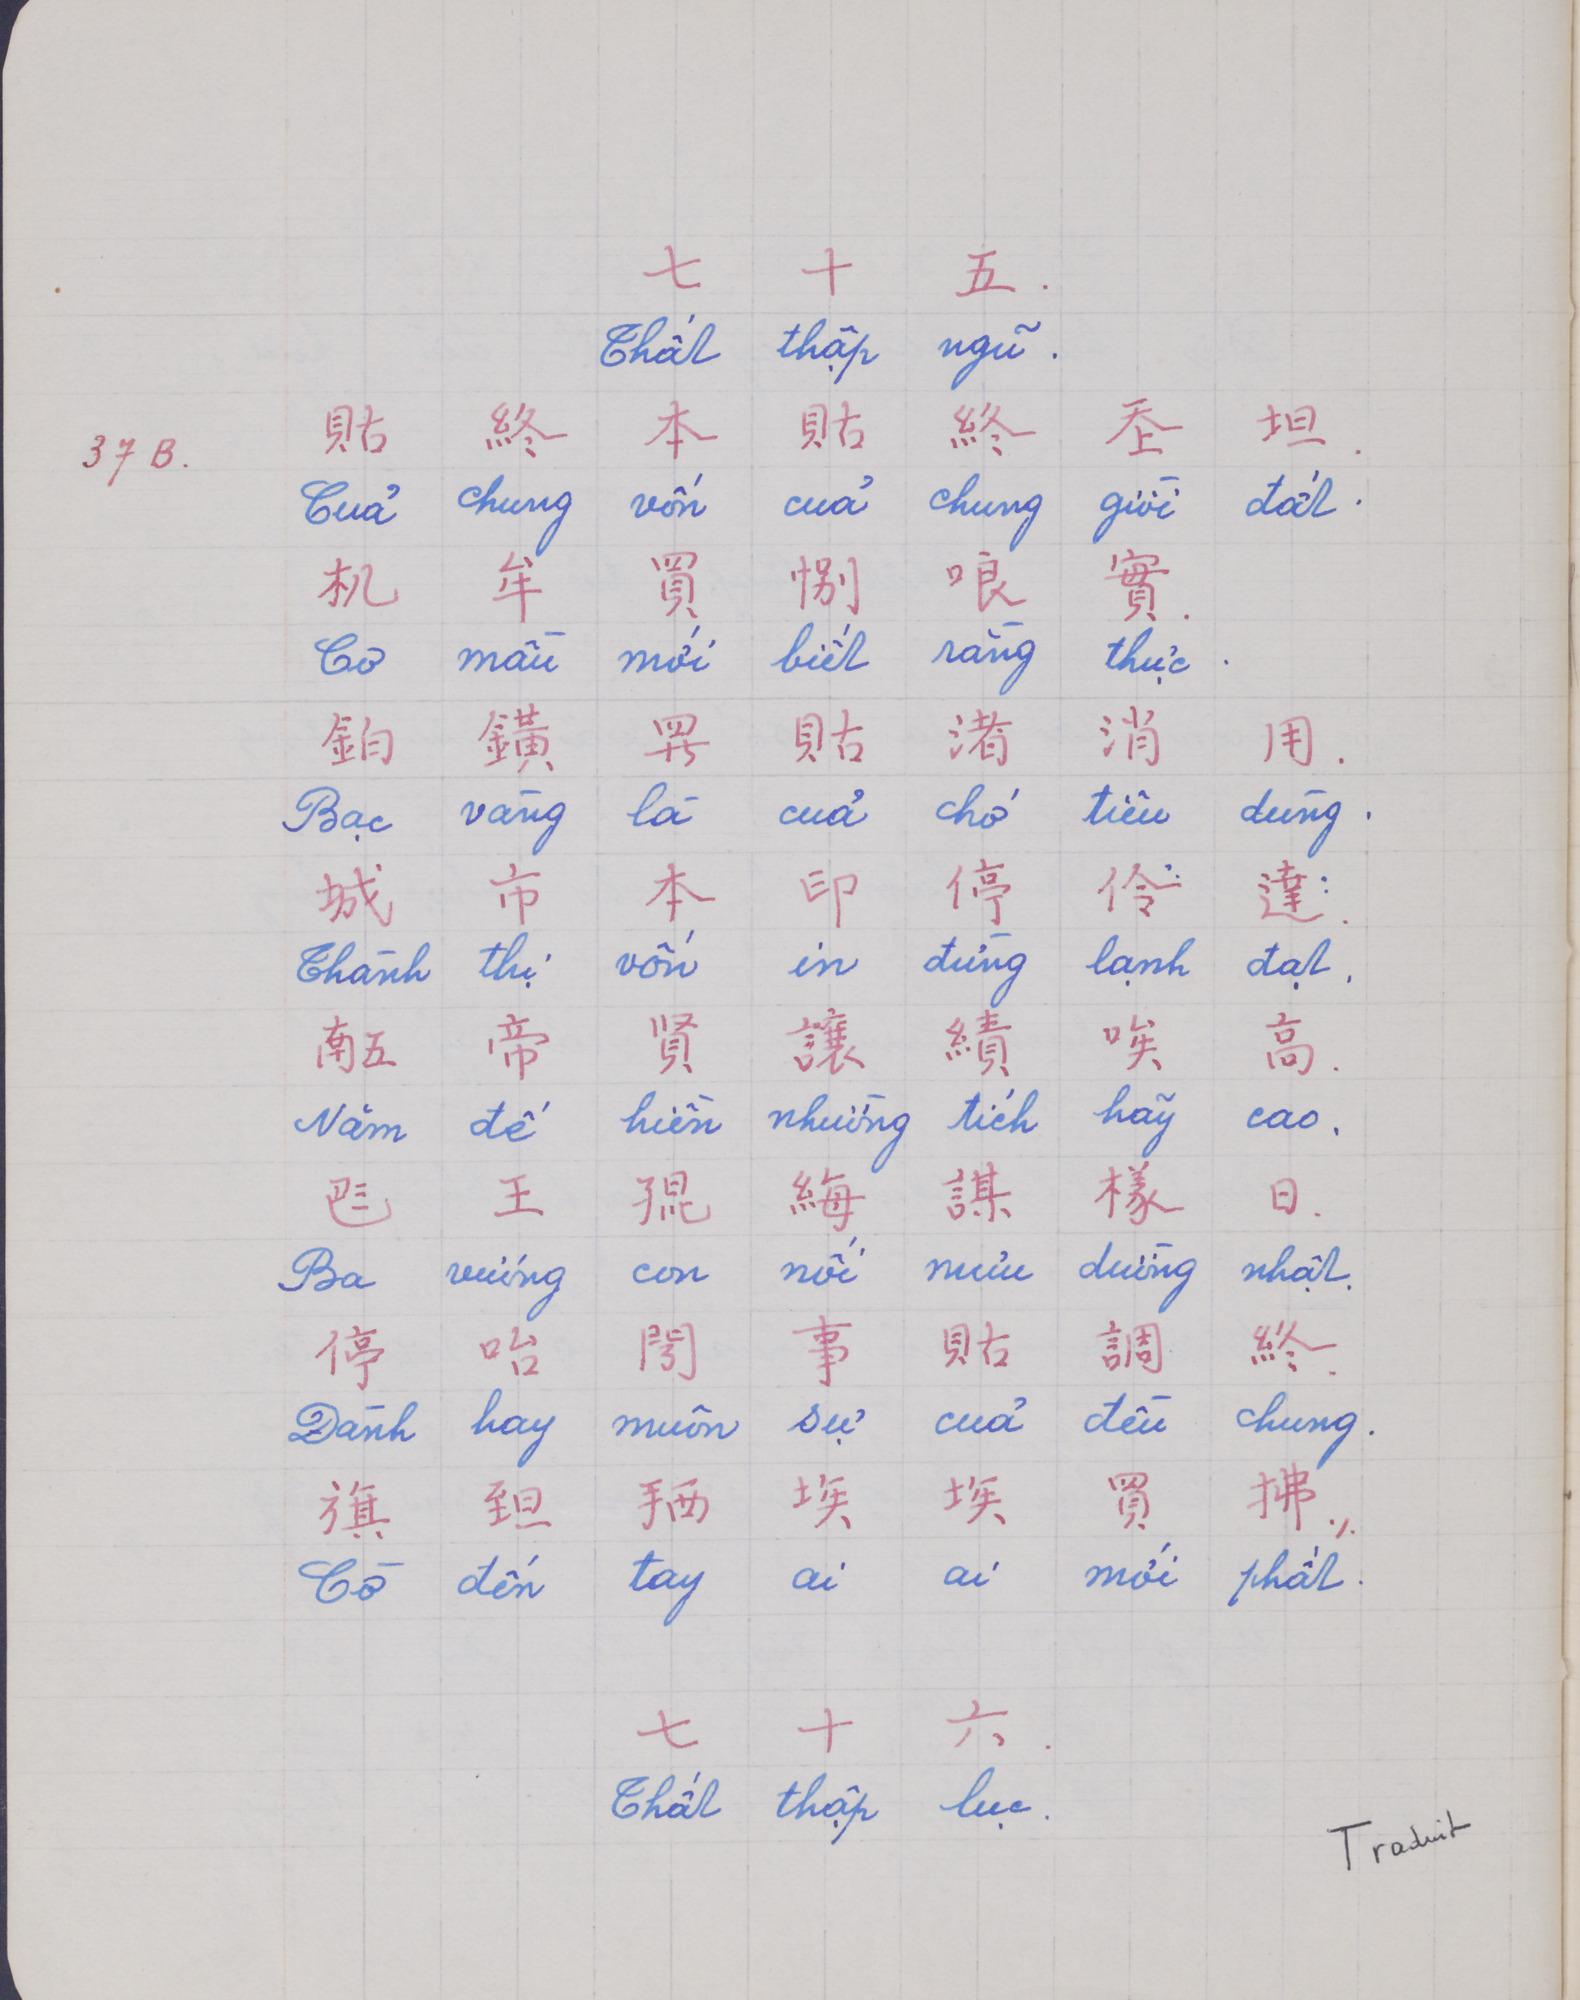 七 十 五.
Thất thập ngũ.
37 B.
貼 終 本 貼 終 坖 坦.
Cuả chung vốn cuả chung giời đất.
机 牟 買 𢘾 哴 實.
Cơ mầu mới biết rằng thực.
鉑 鐄 𱺵 貼 渚 消 用.
Bạc vàng là cuả chớ tiêu dùng.
城 市 本 印 停 伶 達.
Thành thị vốn in đừng lạnh đạt.
𠄼 帝 賢 讓 績 唉 高.
Năm đế hiền nhường tích hãy cao.
𠀧 王 𡥵 䋦 謀 樣 日.
Ba vương con nối mưu dường nhật.
停 咍 閍 事 貼 調 終.
Dành hay muôn sự cuả đều chung.
旗 𦤾 𢬣 埃 埃 買 拂.
Cờ đến tay ai ai mới phất.
七 十 六.
Thất thập lục.
Traduit